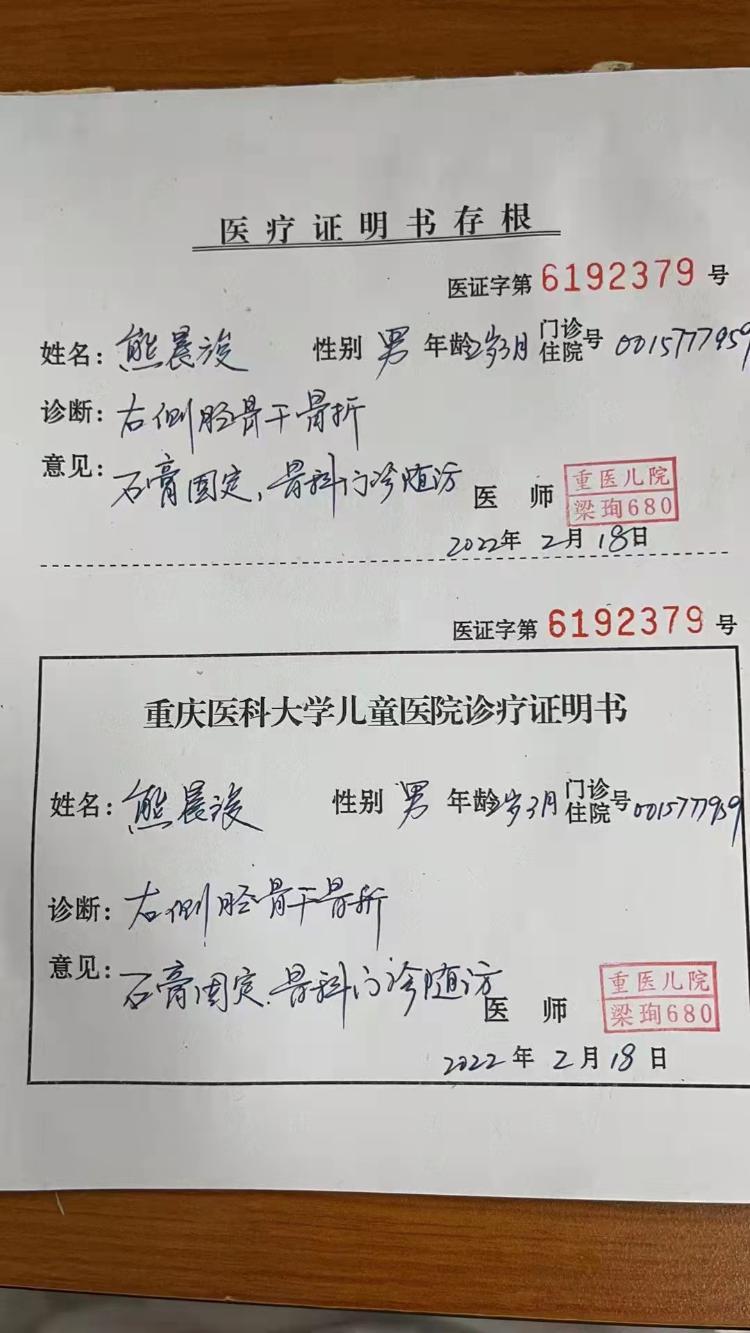 医疗证明书存根
医证字第 6192379 号
姓名：熊晨浚 性别 男 年龄 2岁3月 门诊住院号 0015777959
诊断：右侧胫骨干骨折
意见：石膏固定、骨科门诊随访
医师 重医儿院 梁珣680
2022年 2月 18日
医证字第 6192379 号
重庆医科大学儿童医院诊疗证明书
姓名：熊晨浚 性别 男 年龄 2岁3月 门诊住院号 0015777959
诊断：右侧胫骨干骨折
意见：石膏固定、骨科门诊随访
医师 重医儿院 梁珣680
2022年 2月 18日